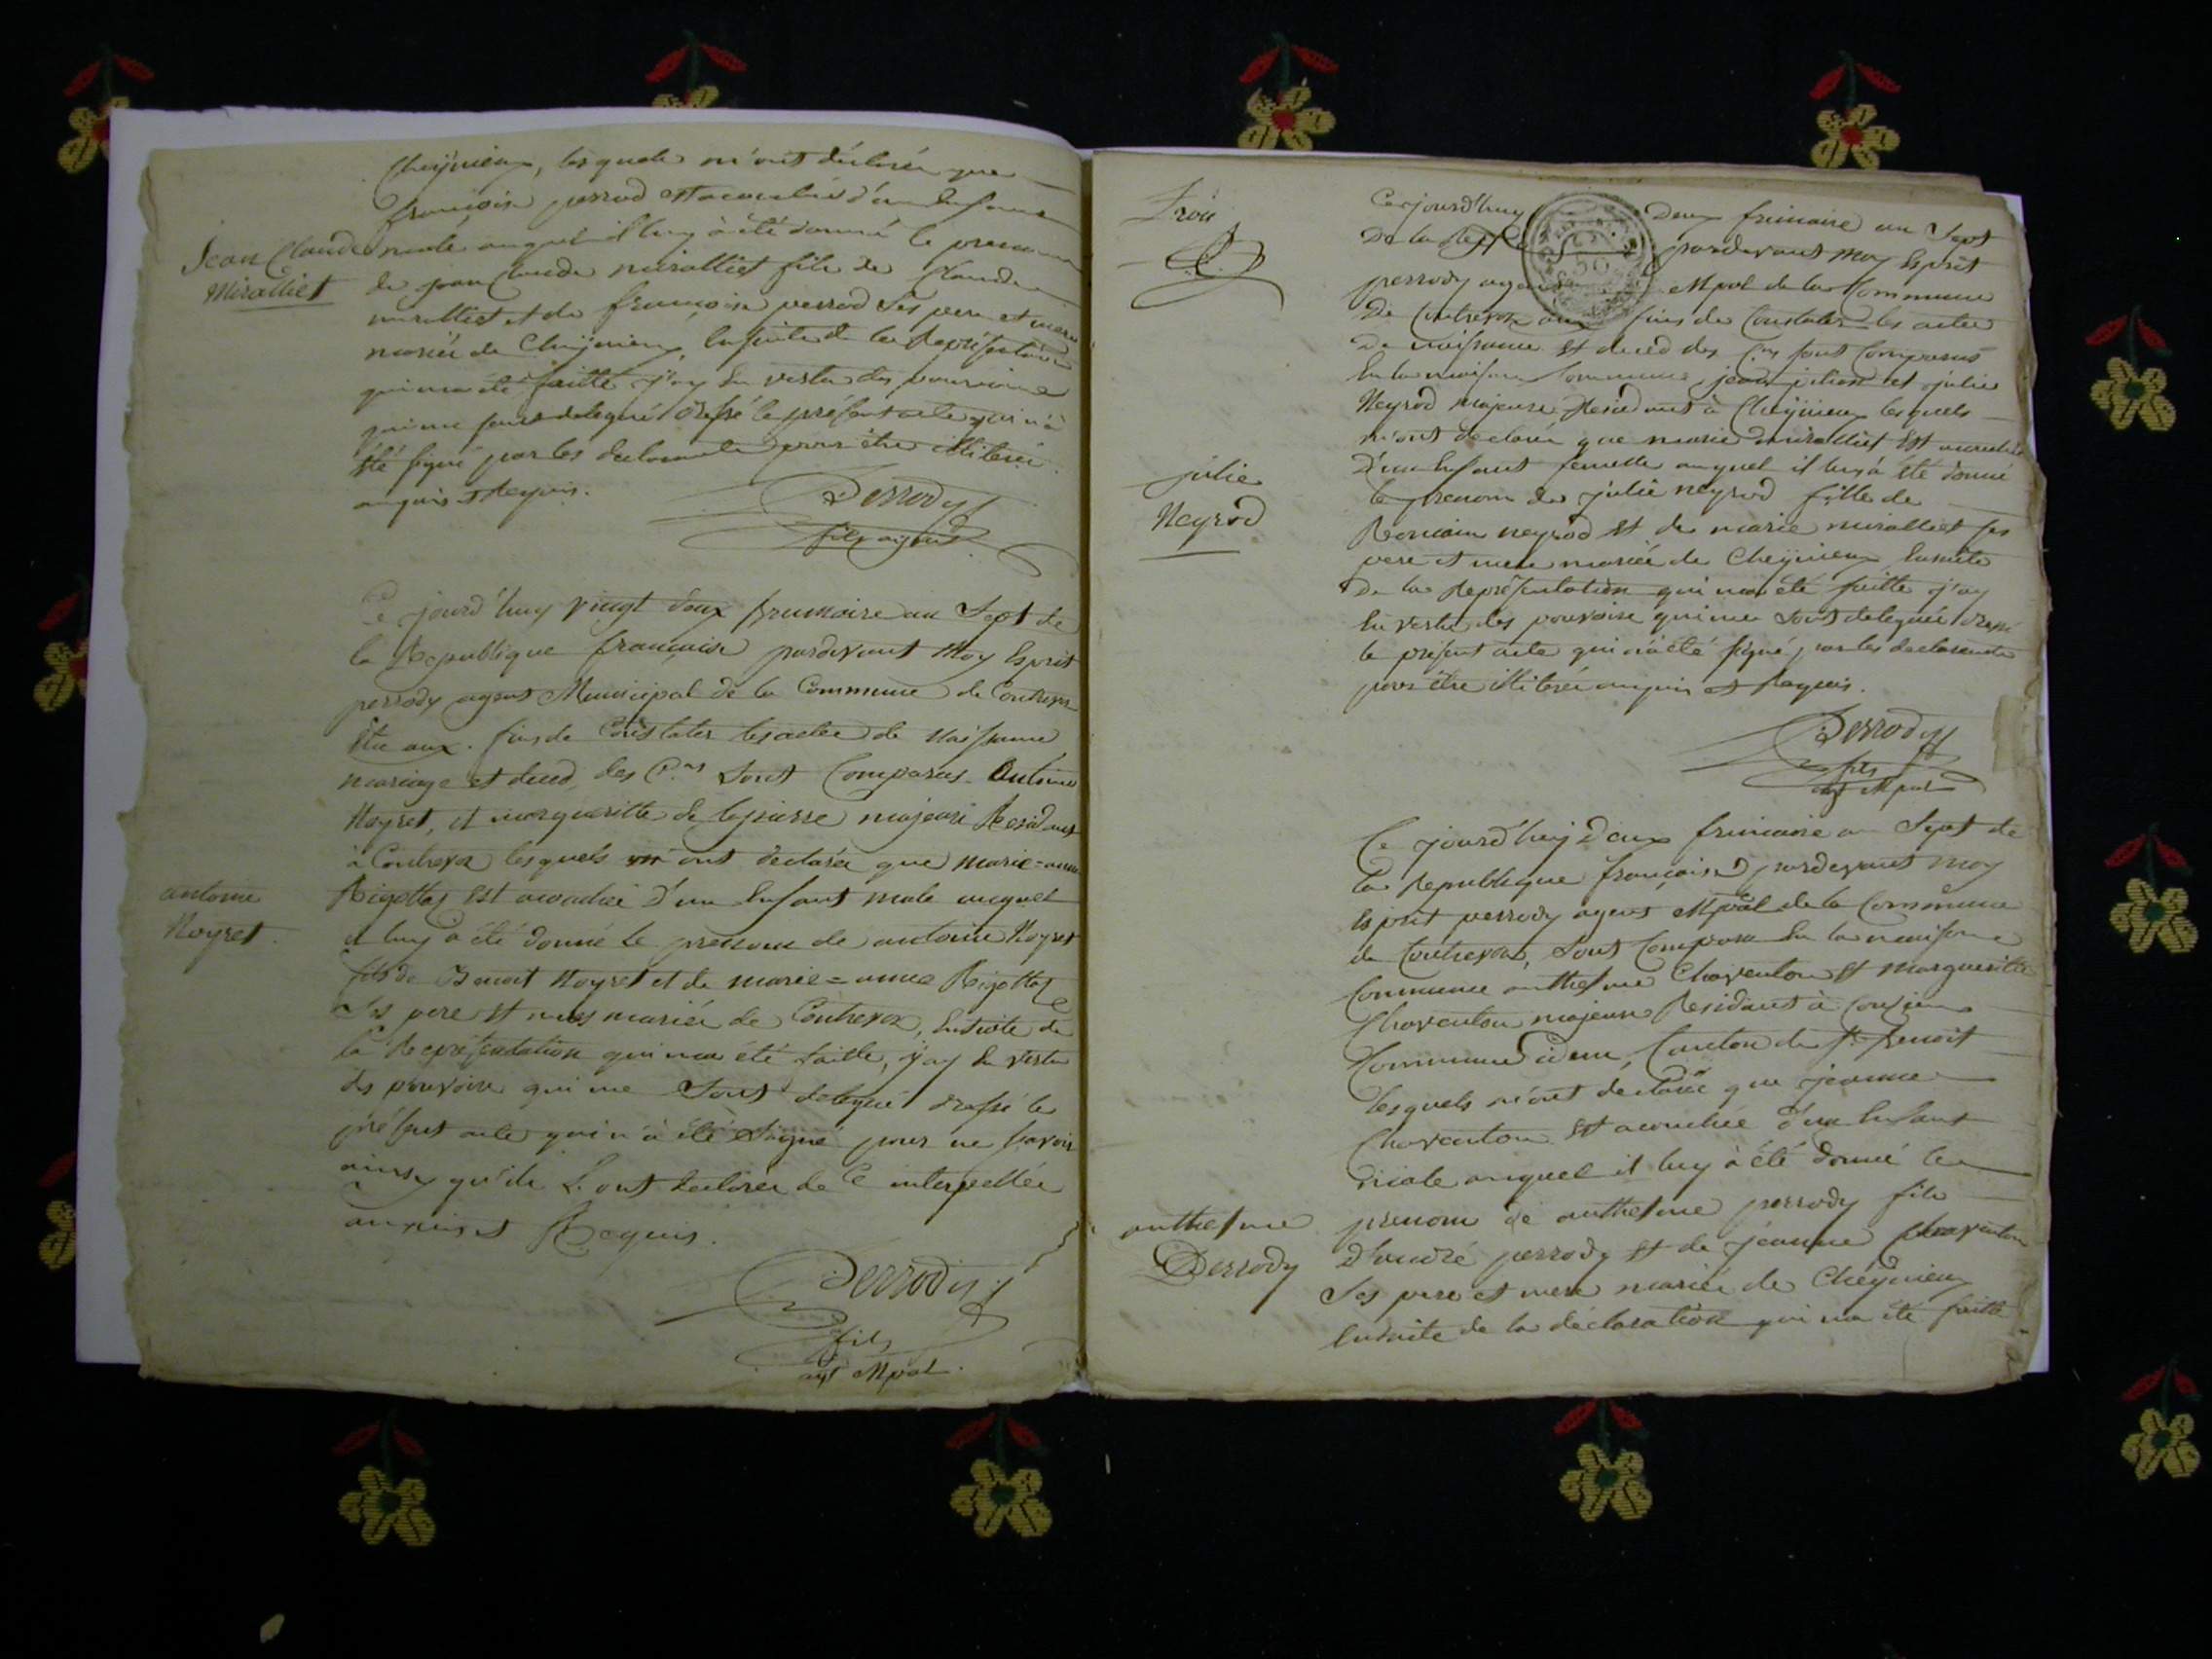 Cheÿnieux, lesquels m'ont déclarés que
françoise perrod est acouchée d'un Enfant
Jean Claude
Miralliet
male auquel il luy à été donné le prenom
de jean Claude miralliet fils de Claude
miralliet et de françoise perrod ses pere et mere
mariés de Cheÿnieux, Ensuite de la Représentation
qui ma été faitte j'ay En vertu des pouvoirs
qui me sont delegués dressé le présent acte qui n'à
été signé par les declarants pour être illiterés
enquis et Requis.
Perrody
fils agent
Ce jourd'huy vingt deux frimaire an Sept de
la Republique françoise pardevant Moy Esprit
perrody agent Municipal de la Commune de Contrevoz
Elu aux fins de Constater les actes de Naissance
mariage et deced des C.ns Sont Comparus Antoine
Noyret, et margueritte de lapierre majeurs Residant
à Contrevoz lesquels m'ont declarés que marie=anne
antoine
Noyret.
Rigottaz Est acouchée d'un Enfant male auquel
il luy à été donné le prenom de antoine Noyret
fils de Benoit Noyret et de marie=anne Rigottaz
Ses pere et mere mariés de Contrevoz, Ensuite de
la Représentation qui ma été faitte, j'ay En vertu
des pouvoirs qui me Sont delegués dressé le
présent acte qui n'à été Signé pour ne savoir
ainsy qu'ils L'ont declarés de Ce interpellés
enquis et Requis.
Perrody
fils
agt Mpal.
Trois
Cejourd'huy Deux frimaire an Sept
De la Rep pardevant moy Esprit
perrody agent Mpal de la Commune
De Contrevoz aux fins de Constater les actes
De naissance et deced des C.ns sont Comparus
En la maison Commune, jean et julie
Neyrod majeurs Residants à Cheÿnieux lesquels
m'ont declarés que marie miralliet Est acouchée
D'un Enfant femelle auquel il luy à été donné
julie
Neyrod
le prenom de julie neyrod fille de
Romain neyrod et de marie miralliet ses
pere et mere mariés de Cheÿnieux Ensuite
De la Représentation qui ma été faitte j'ay
En vertu des pouvoirs qui me sont delegués dressé
le présent acte qui n'à été signé par les declarants
pour être illiterés enquis et Requis.
Perrody
fils
agt Mpal
Ce jourd'huy Deux frimaire an Sept de
la Republique françoise pardevant moy
Esprit perrody agent Mpal de la Commune
de Contrevoz, Sont Comparus En la maison
Commune anthelme Charenton et Margueritte
Charenton majeurs Residants à
Commune idem, Canton de St. Benoit
lesquels m'ont declarés que jeanne
Charenton est acouchée d'un Enfant
male auquel il luy à été donné le
anthelme
Perrody
prenom de anthelme perrody fils
D'andré perrody et de jeanne Charenton
Ses pere et mere mariés de Cheÿnieux
Ensuite de la déclaration qui ma été faitte